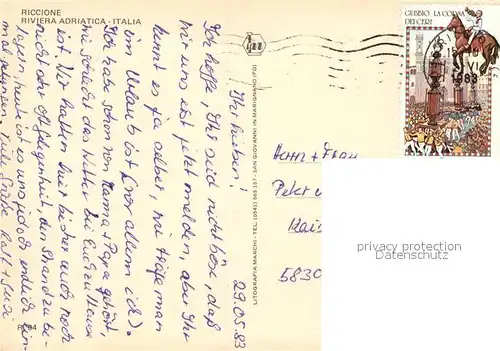 RICCIONE
RIVIERA ADRIATICA - ITALIA
GUBBIO LA CORSA
DEI CERI
1983
29.05.83
Ihr Lieben!
Ich hoffe, Ihr seid nicht böse, daß
wir uns erst jetzt melden, aber Ihr
kennt es ja selber, wie träge man
im Urlaub ist (vor allem ich).
Ich habe schon von Mama + Papa gehört,
wie schlecht das Wetter bei Euch zu Hause
ist. Wir hatten hier bisher auch noch
nicht oft Gelegenheit, den Strand zu be-
lagern, heute ist es uns jedoch endlich
mal gelungen. Viele Grüße Ralf + Susi
LITOGRAFIA MARCHI - TEL. (0541) 955.157 - SAN GIOVANNI IN MARIGNANO (FO)
Herrn + Frau
Peter
5830
privacy protection
Datenschutz